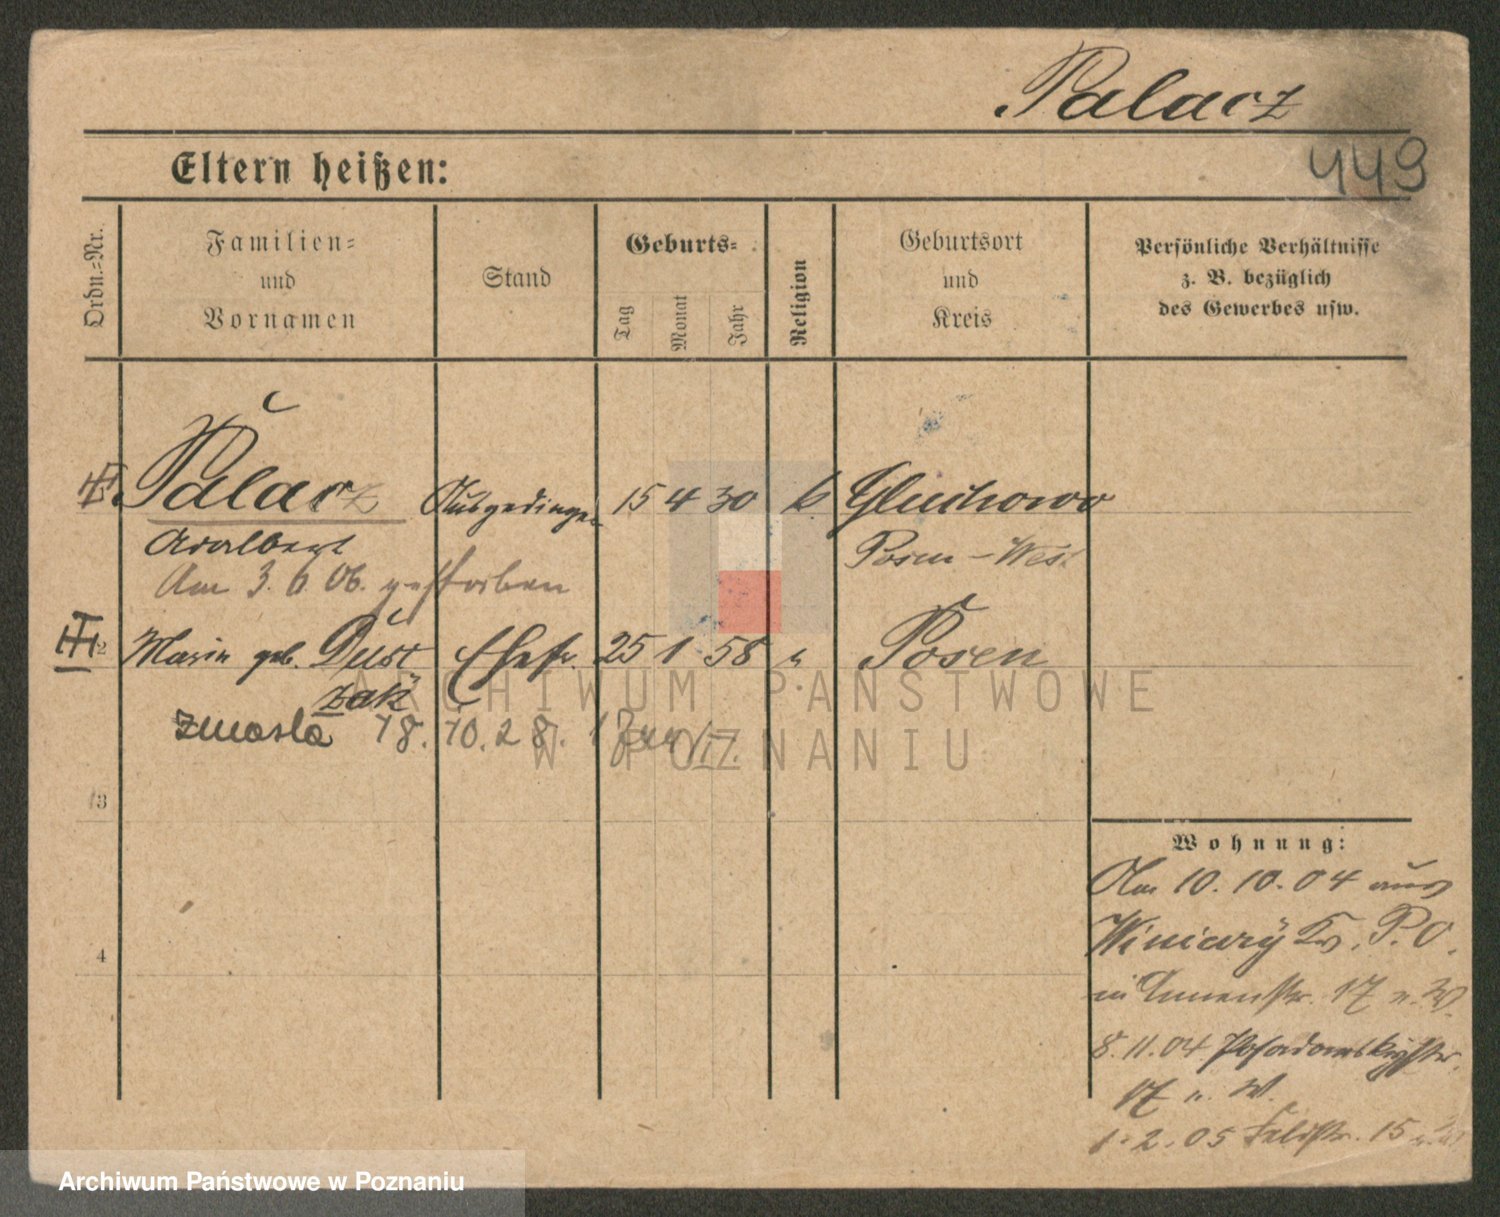 Palacz
449
Eltern heißen:
Ordn.-Nr.
Familien- und Vornamen
Stand
Geburts-
Tag
Monat
Jahr
Religion
Geburtsort und Kreis
Persönliche Verhältnisse z. B. bezüglich des Gewerbes usw.
Palacz Ausgedinger 15 4 30 k Gluchowo
Adalbert Posen-West
Am 3. 6 06. gestorben
2 Marie geb. Dust Ehefr. 25 1 58 " Posen
zak
zmarła 18. 10. 28.
3
4
Wohnung:
Am 10. 10. 04 aus
Winiary Kr. P. O.
in 17 n. W.
8. 11. 04 Posadowskystr.
17 n. W.
1. 2. 05 Feldstr. 15
ARCHIWUM PAŃSTWOWE
W POZNANIU
Archiwum Państwowe w Poznaniu